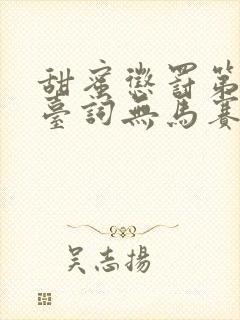 甜蜜懲罰第
臺詞無馬賽
吴志揚